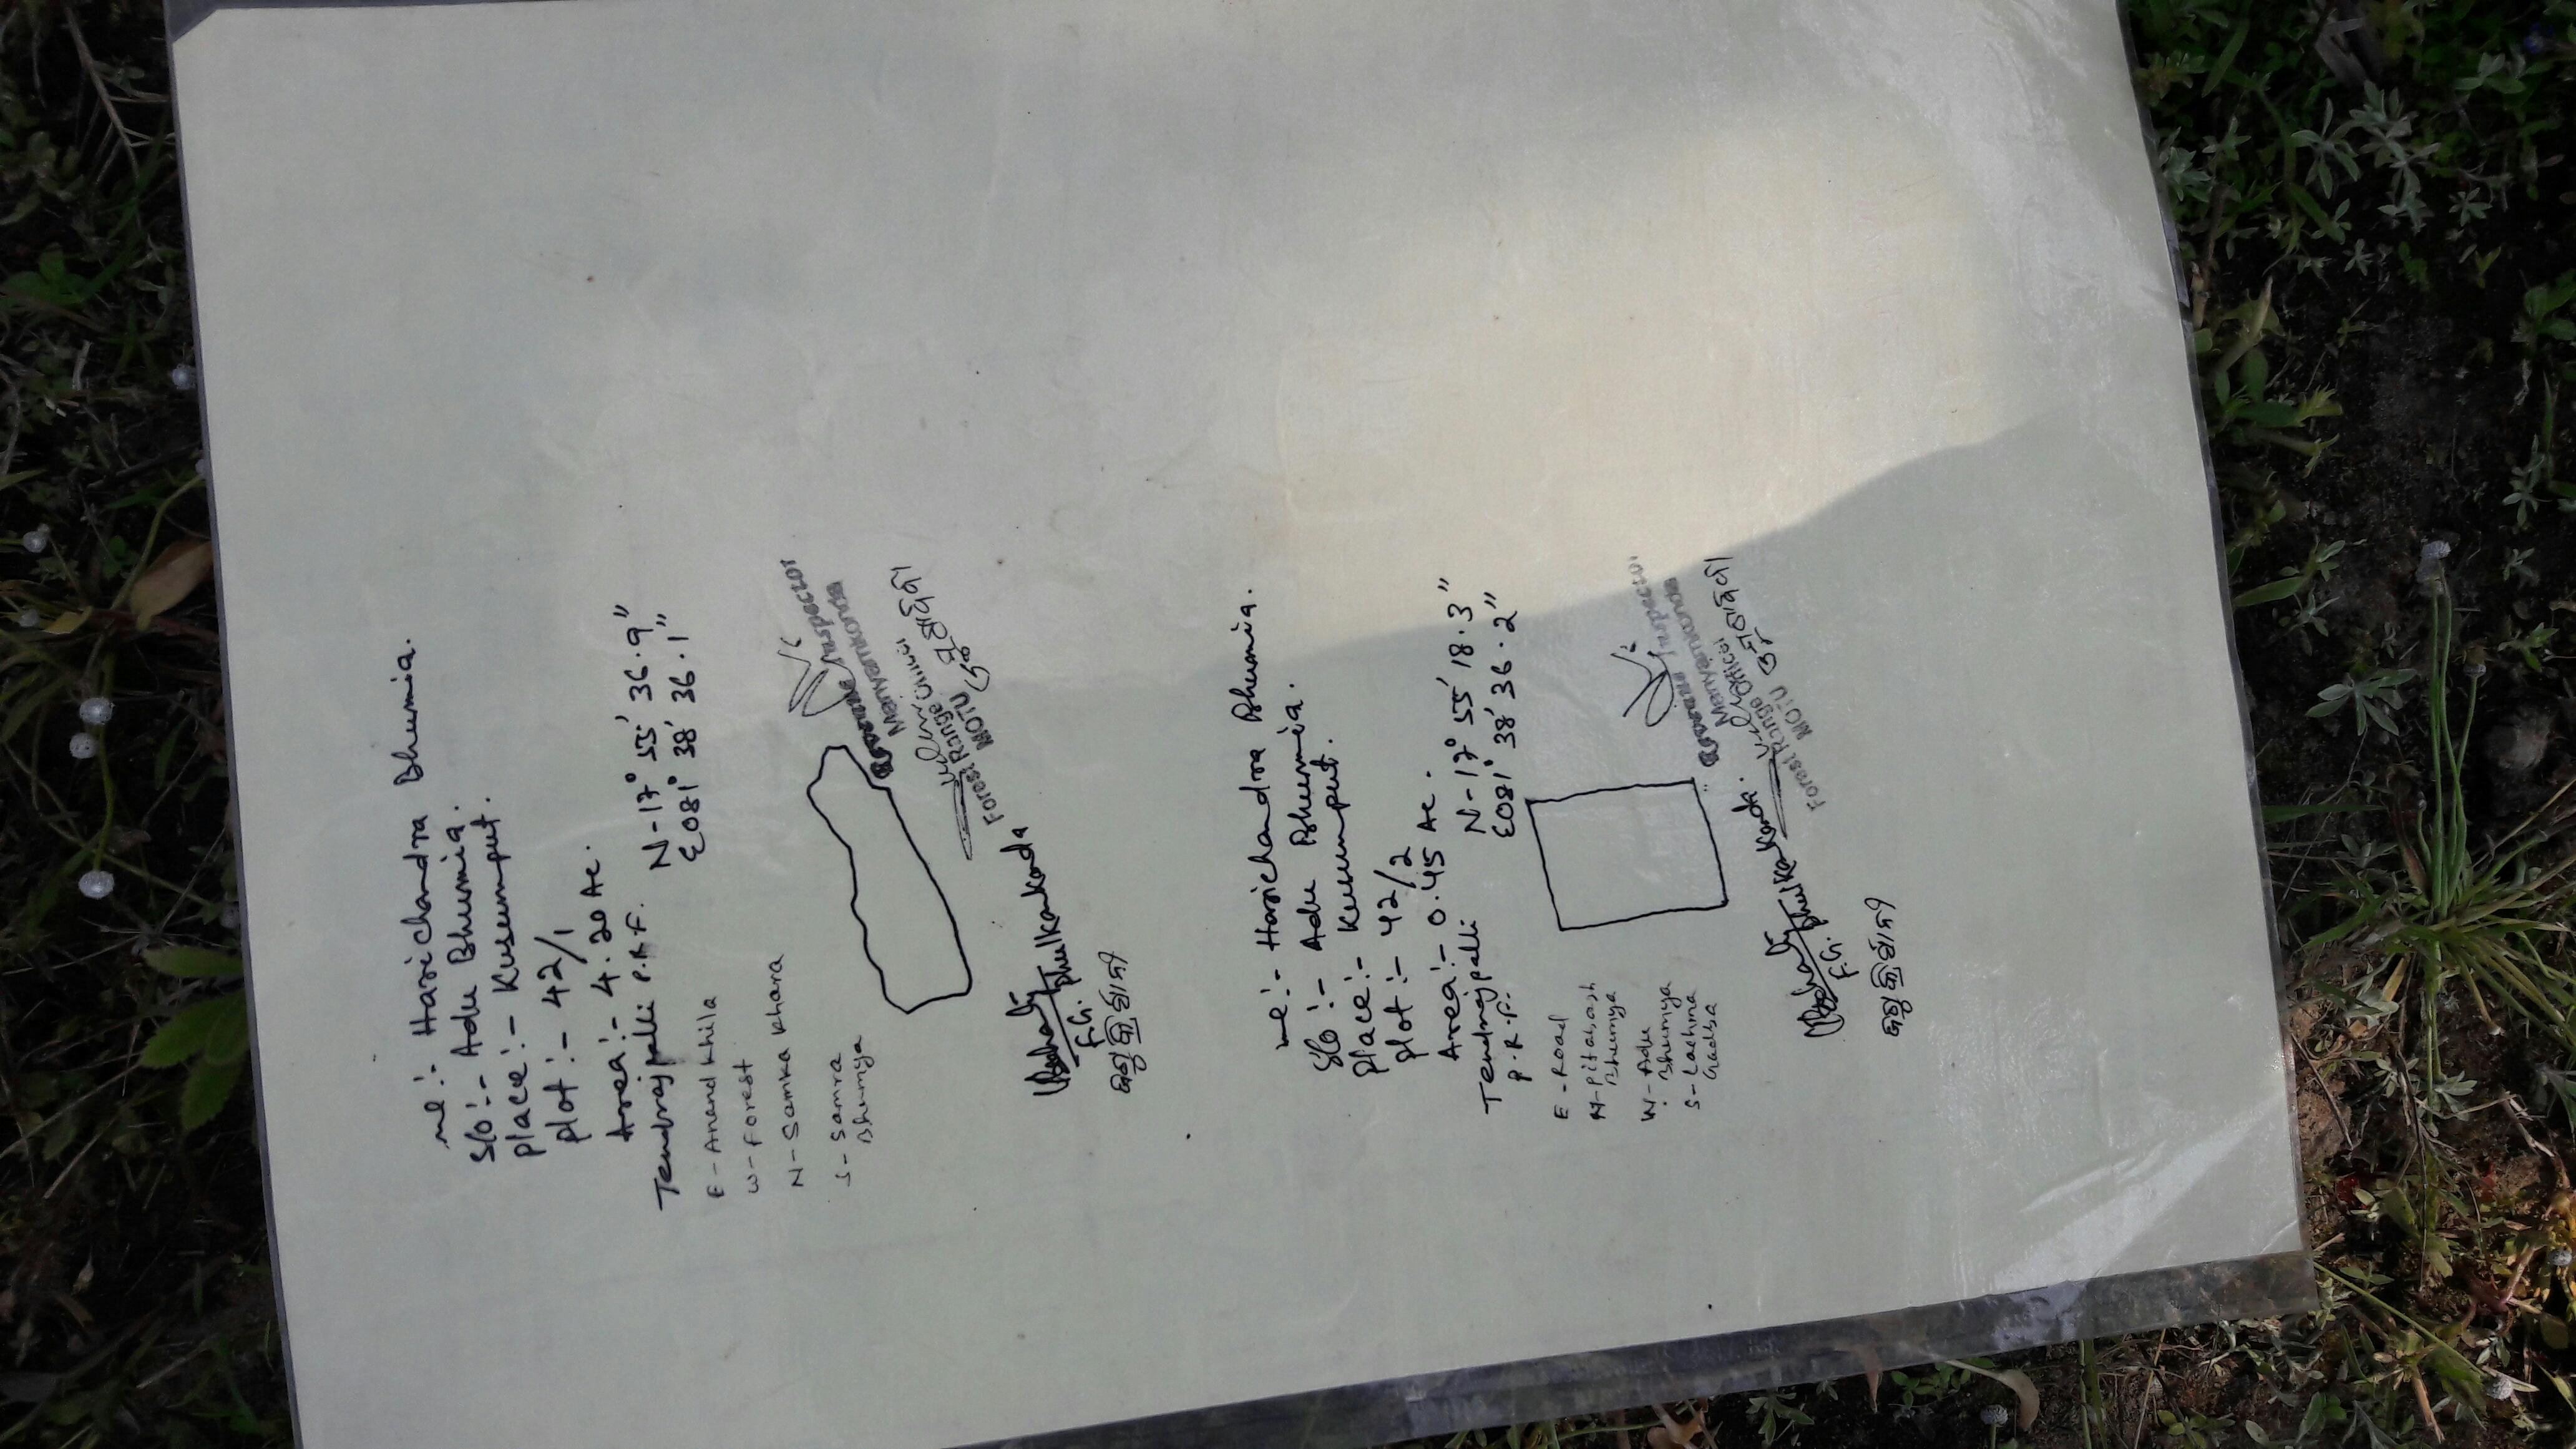 ne :- Harichandra Bhumia.
S/o :- Adu Bhumia.
Place :- Kusumput.
Plot :- 42/1
Area :- 4.20 Ac.
Tendrajpalli P.R.F.
N-17° 55' 36.9"
E081° 38' 36.1"
E - Anand Khila
W - Forest
N - Samka Khara
S - Samra
Bhumya
Revenue Inspector
Manyamkonda
Forest Range Officer
MOTU
Phulkankonda
F.G.
ne :- Harichandra Bhumia.
S/o :- Adu Bhumia.
Place :- Kusumput.
Plot :- 42/2
Area :- 0.45 Ac.
Tendrajpalli
P.R.F.
N-17° 55' 18.3"
E081° 38' 36.2"
E - Road
N - Pitabash
Bhumya
W - Adu
Bhumya
S - Lachma
Gadba
Revenue Inspector
Manyamkonda
Forest Range Officer
MOTU
Phulkankonda.
F.G.